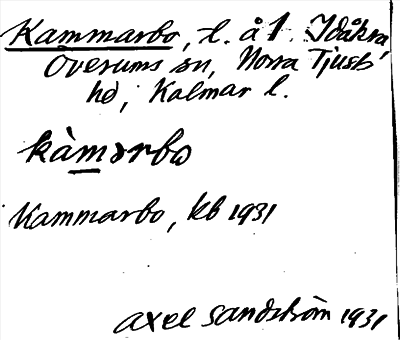 Kammarbo, t. å 1 Idåkra,
Överums sn, Norra Tjusts
hd, Kalmar l.
kàmarbo
Kammarbo, kb 1931
Axel Sandström 1931